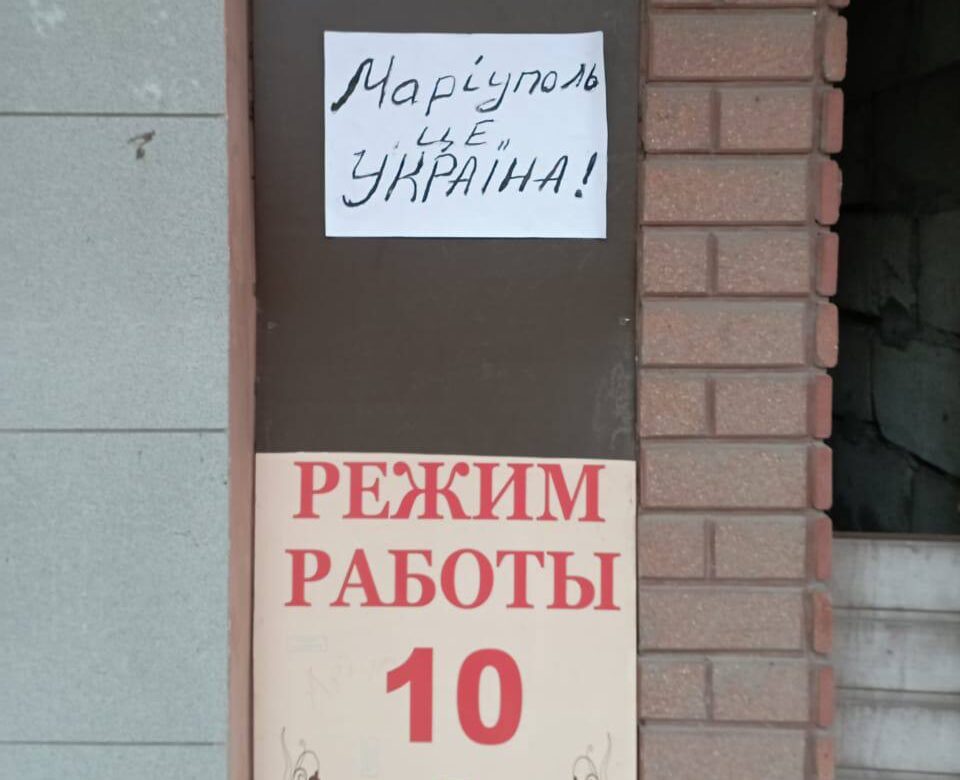 Маріуполь
ЦЕ
УКРАЇНА!
РЕЖИМ
РАБОТЫ
10